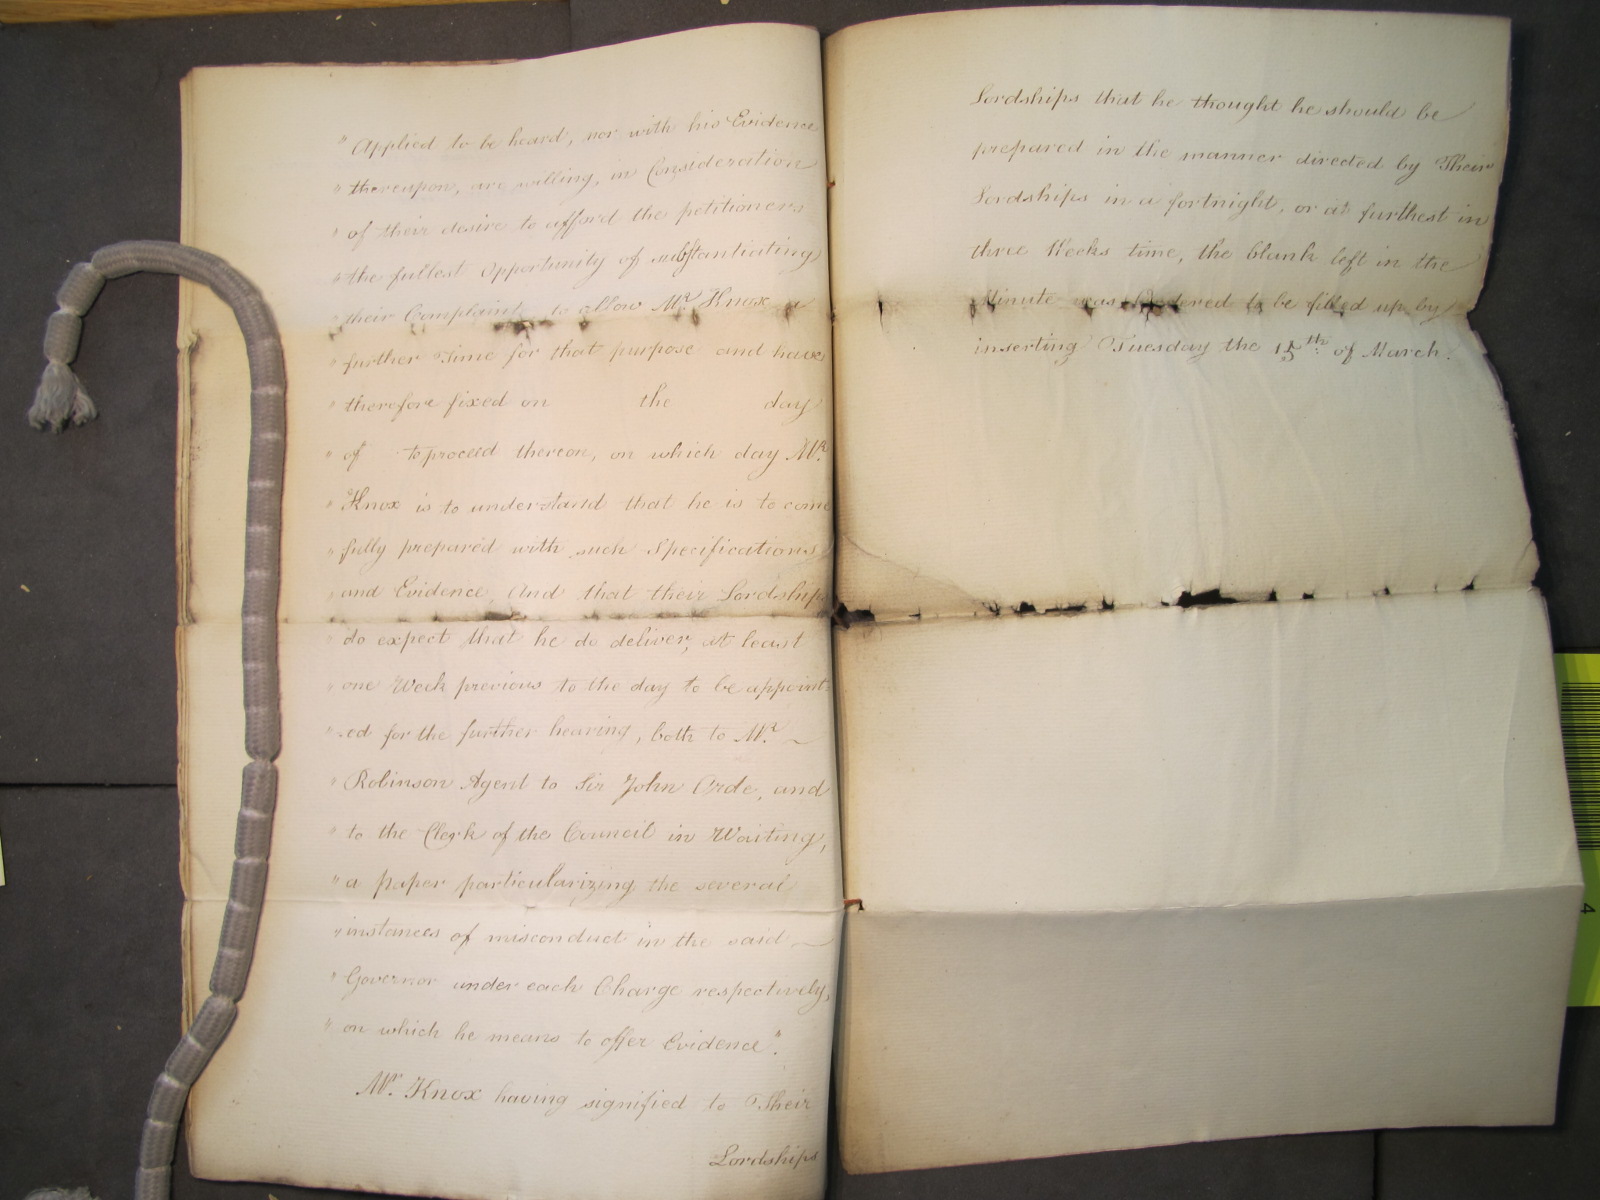 " Applied to be heard, nor with his Evidence
" thereupon, are willing, in Consideration
" of their desire to afford the petitioners
" the fullest Opportunity of substantiating
" their Complaint, to allow Mr. Knox a
" further Time for that purpose and have
" therefore fixed on the day
" of to proceed thereon, on which day Mr.
" Knox is to understand that he is to come
" fully prepared with such Specifications
" and Evidence, And that their Lordships
" do expect that he do deliver, at least
" one Week previous to the day to be appoint-
" -ed for the further hearing, both to Mr.
" Robinson Agent to Sir John Orde, and
" to the Clerk of the Council in Waiting,
" a paper particularizing the several
" instances of misconduct in the said
" Governor under each Charge respectively,
" on which he means to offer Evidence".
Mr. Knox having signified to Their
Lordships
Lordships that he thought he should be
prepared in the manner directed by Their
Lordships in a fortnight, or at furthest in
three Weeks time, the blank left in the
Minute was Ordered to be filled up by
inserting Tuesday the 15th of March.
4